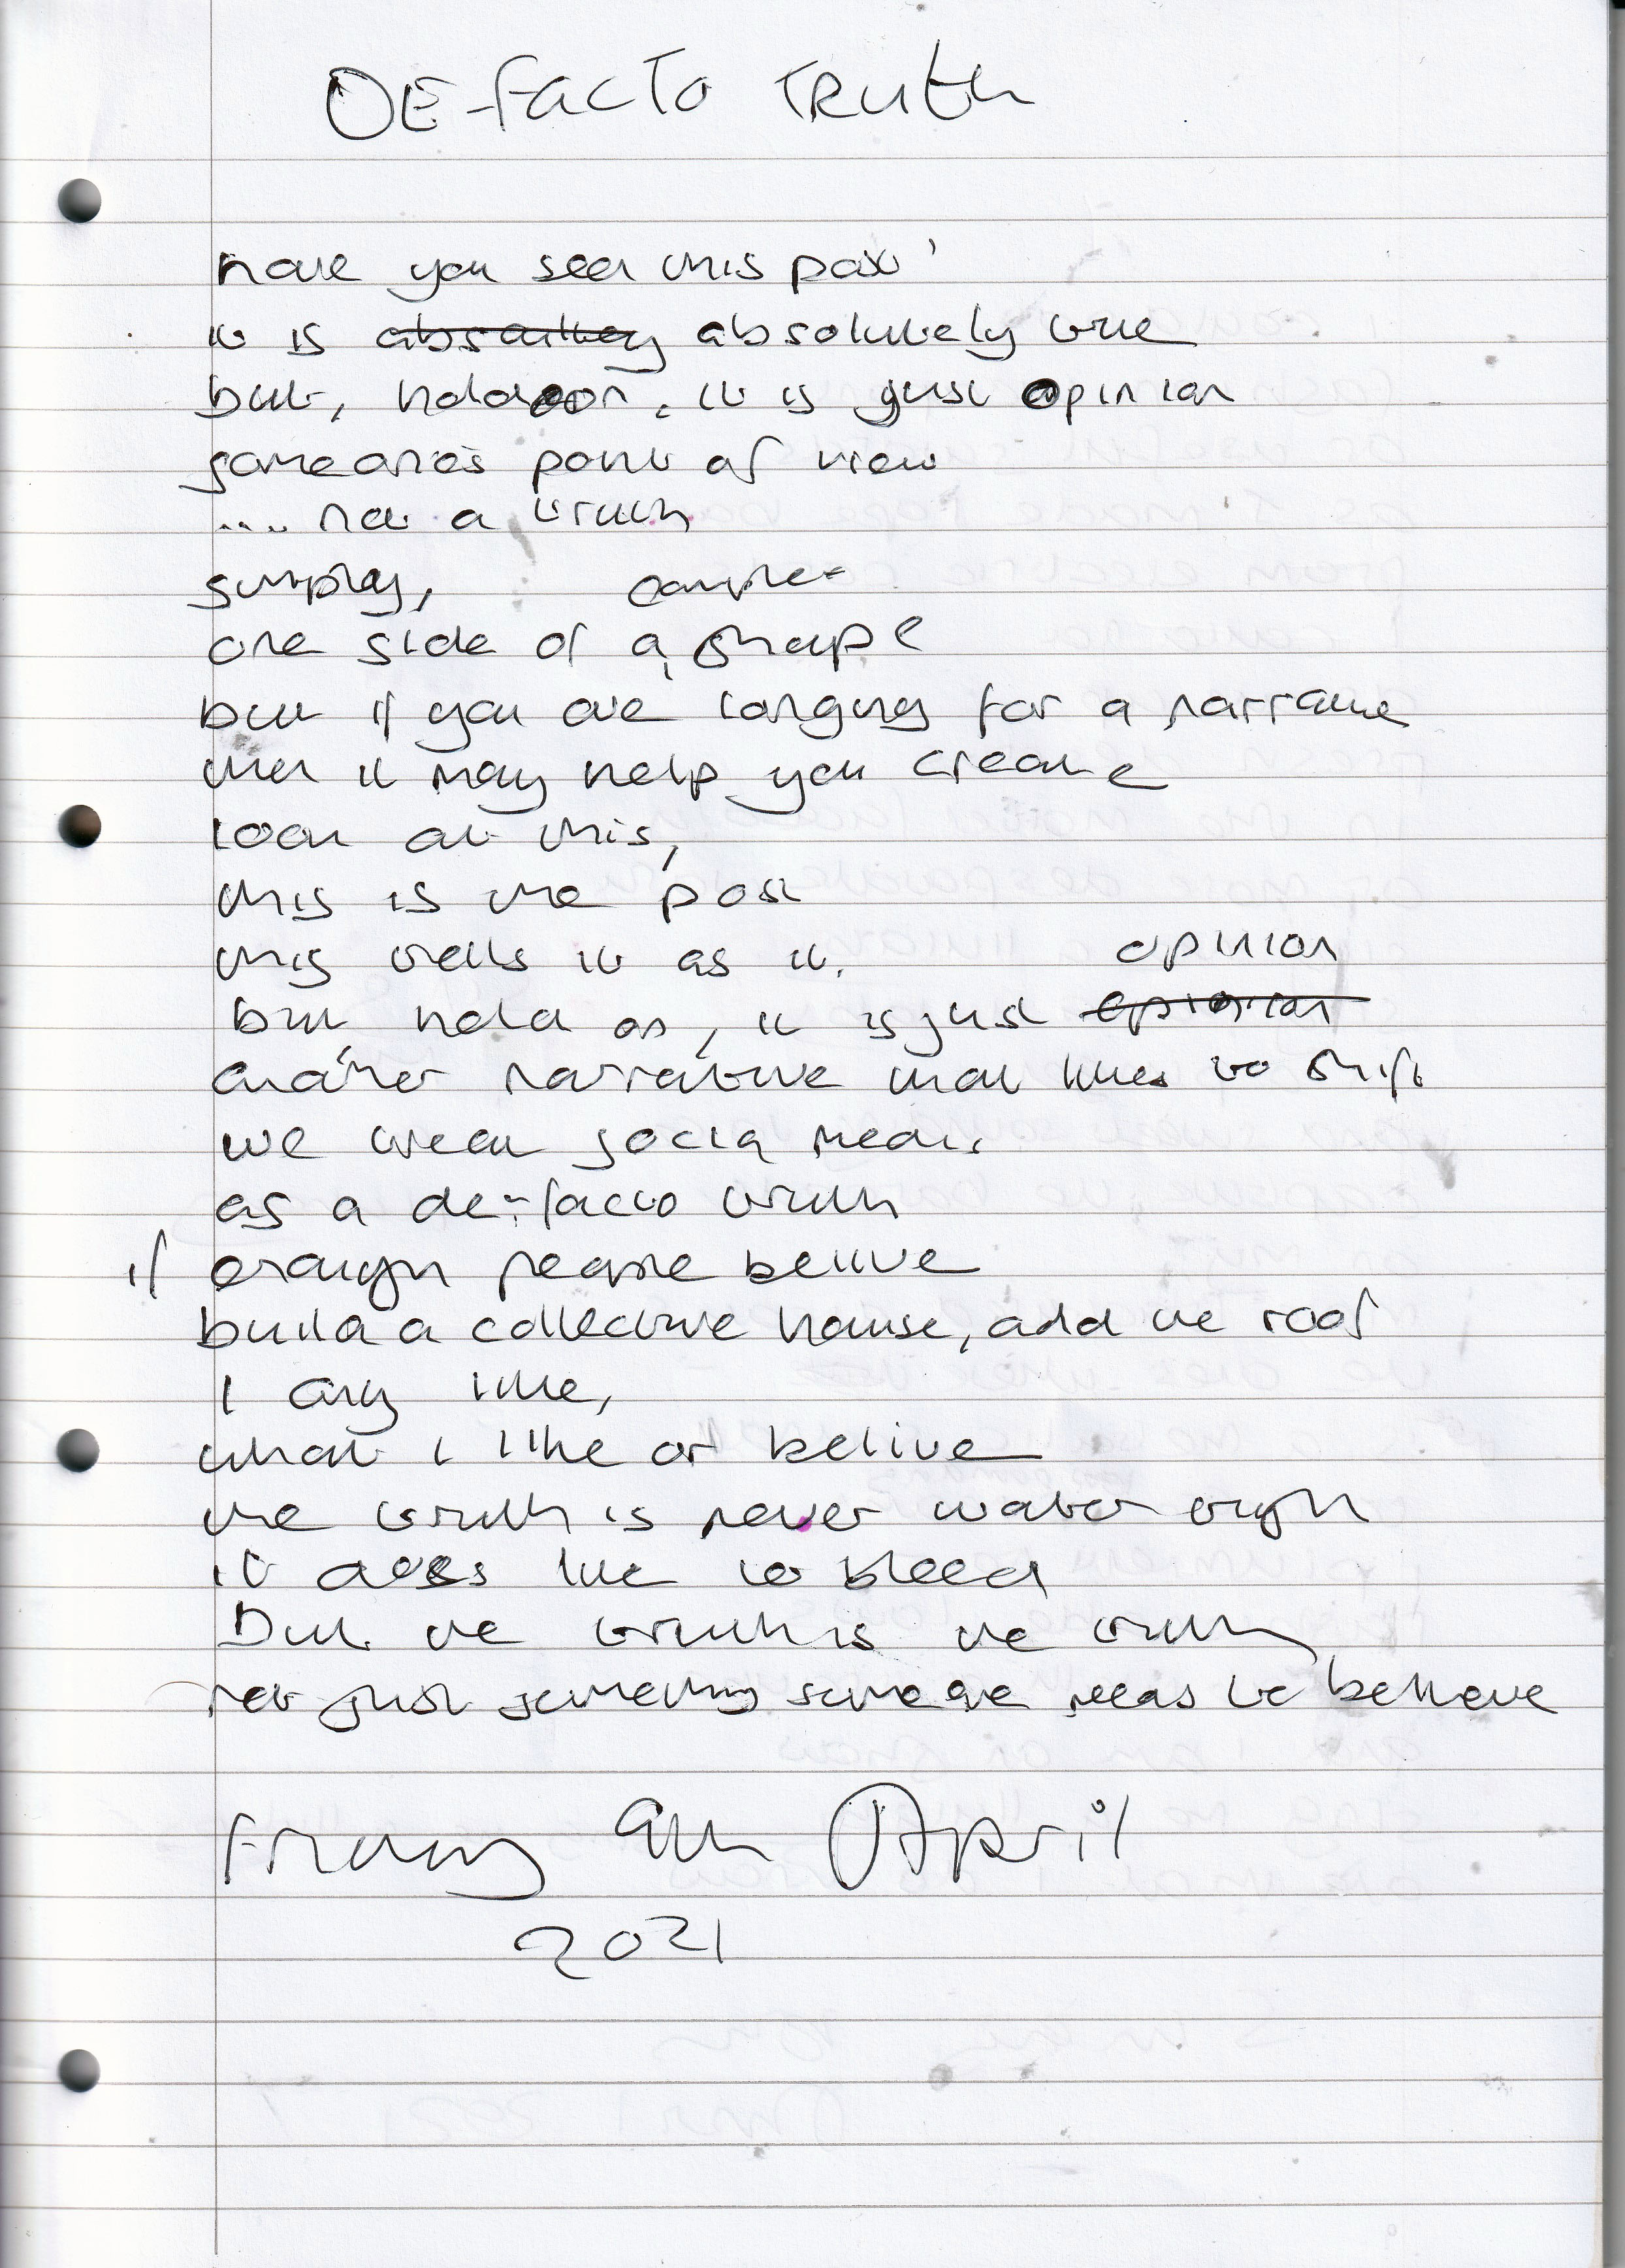 DE-facto TRuth
have you seen this post
it is absolutely true
but, hold on, it is just opinion
someone's point of view
.... not a truth
simply,
complex
one side of a shape
but if you are longing for a narrative
then it may help you create
look at this,
this is the post
this tells it as it.
opinion
but hold on, it is just
another narrative that likes to shift
we treat social
as a de-facto truth
if enough people belive
build a collective house, add the roof
I only like,
what i like or belive
the truth is never water tight
it does like to bleed
But the truth is the truth
not just something someone needs to believe
Friday 9th April
2021